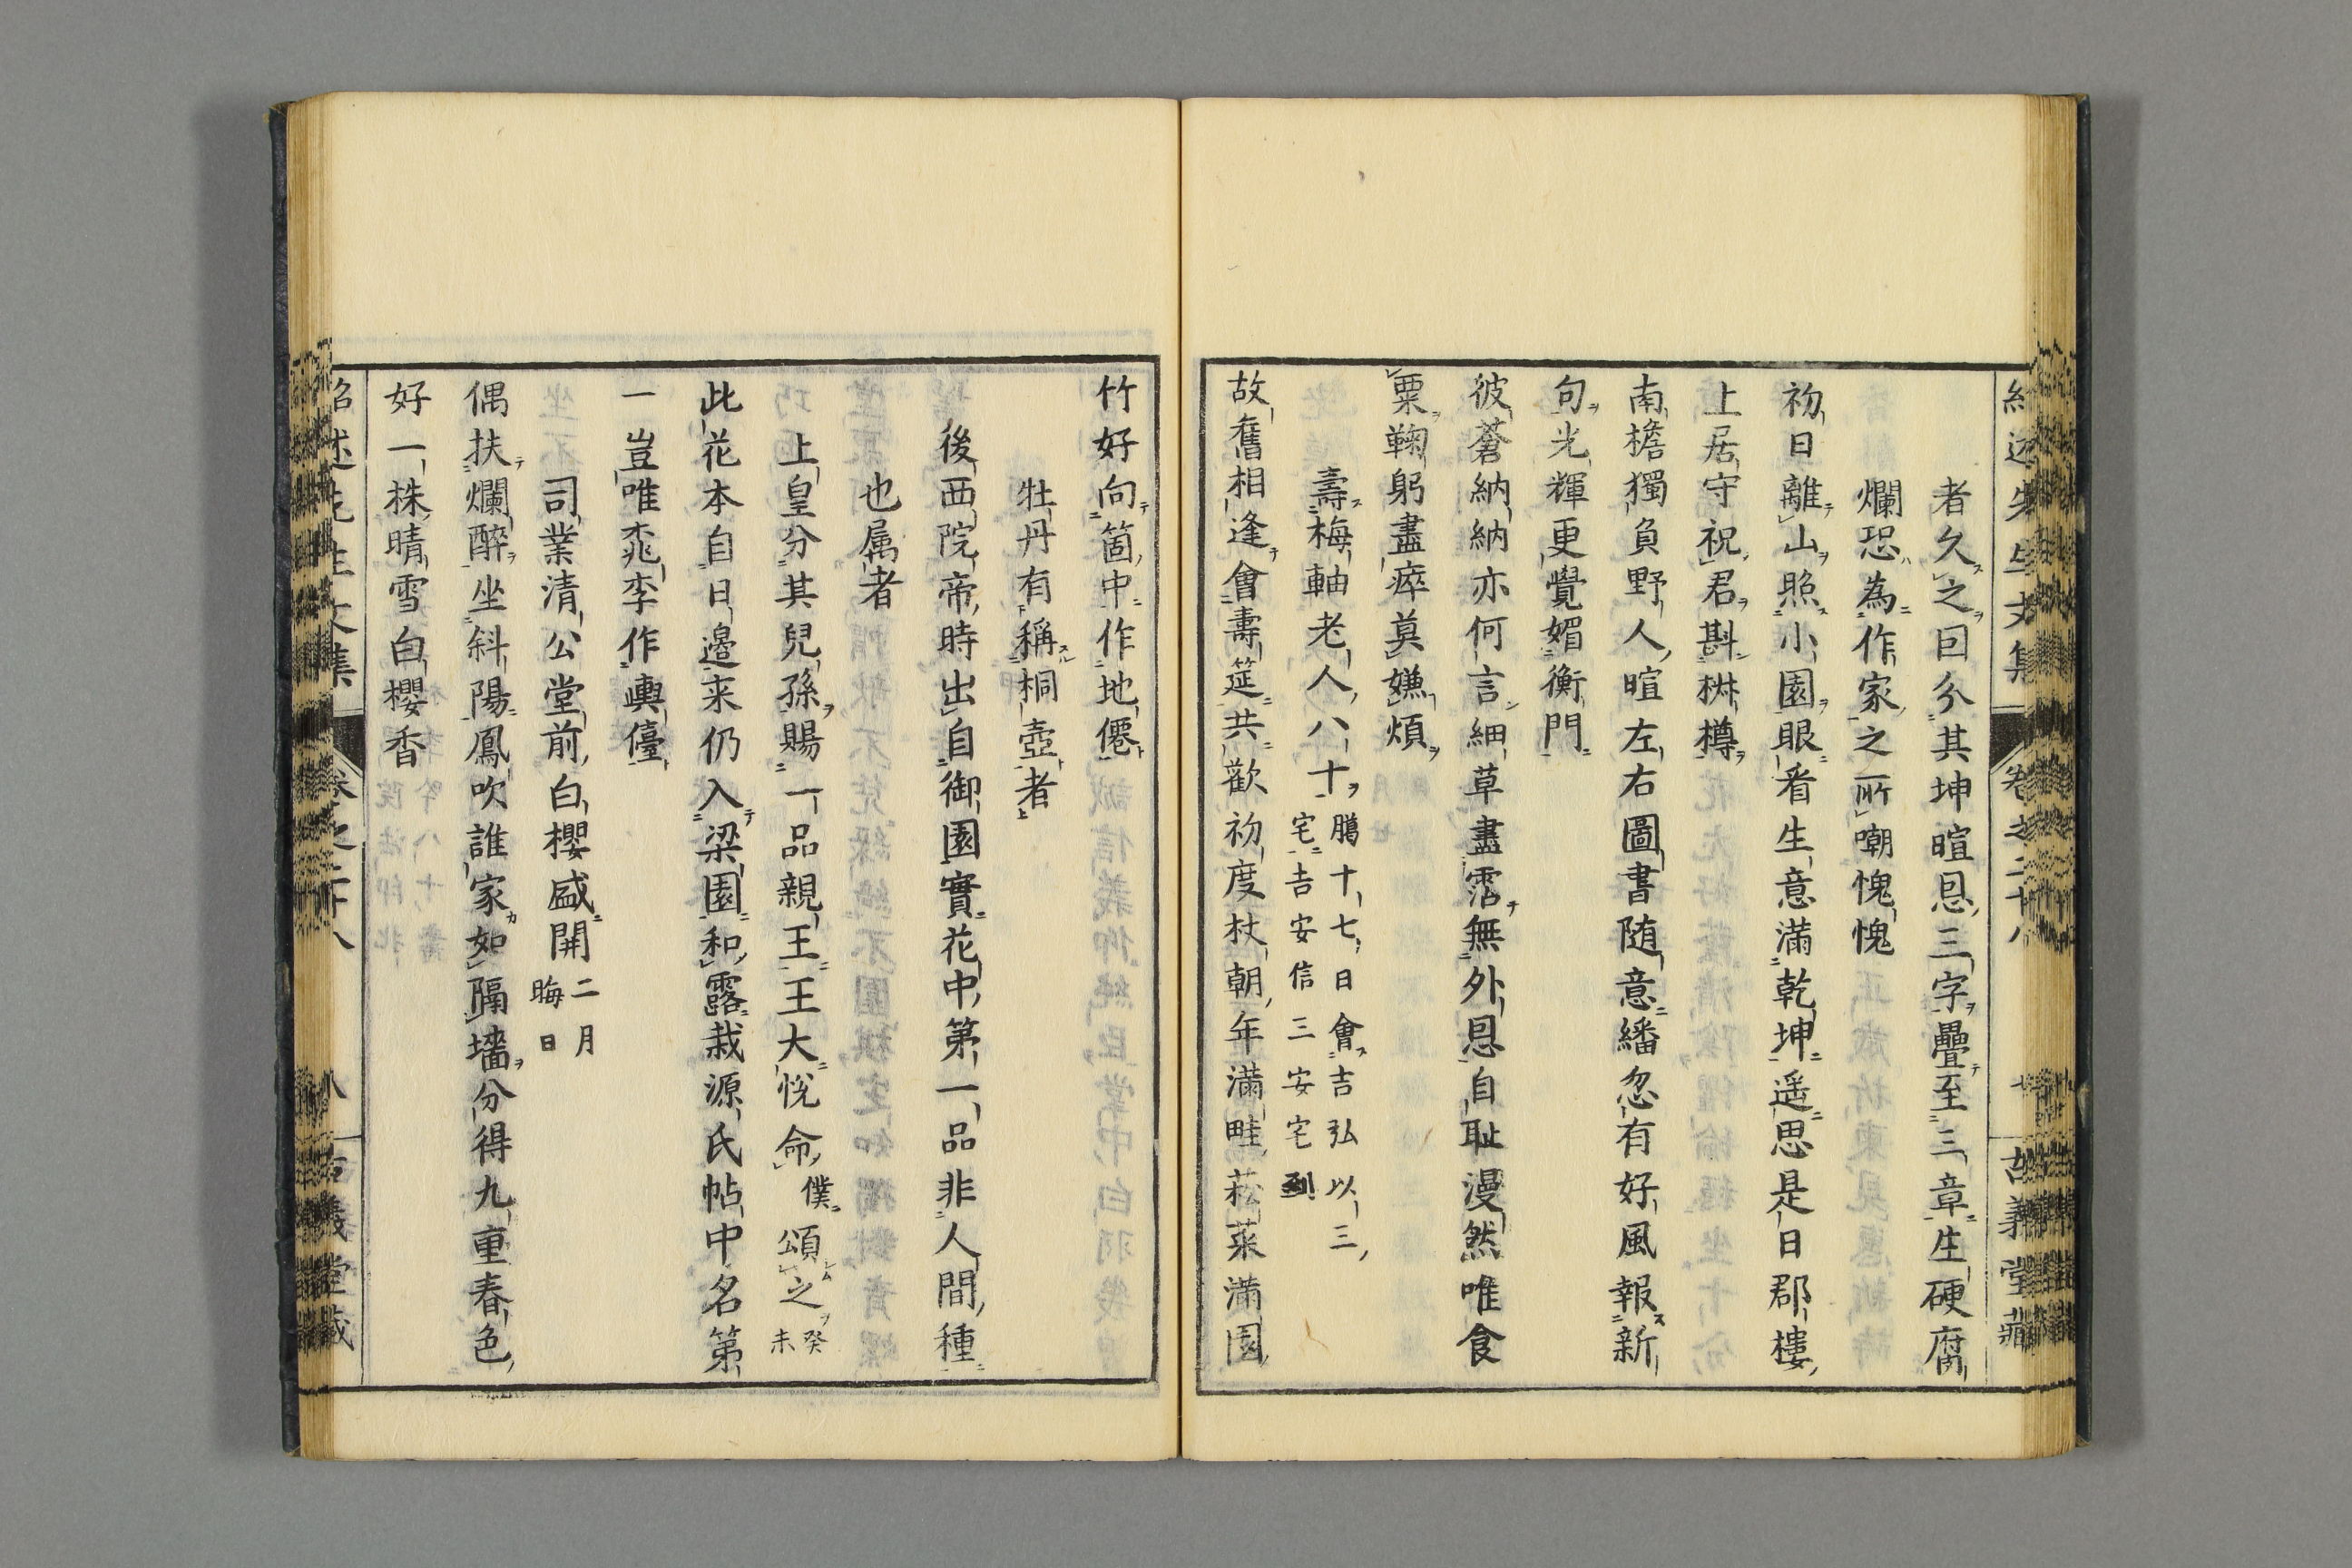 紹述先生文集 卷之二十八 七 古義堂藏
者久之因分其坤暄恩三字疊至三章生硬腐
爛恐為作家之所嘲愧愧
初日離山照小園眼看生意滿乾坤遥思是日郡樓
上居守祝君斟椒樽
南檐獨負野人暄左右圖書随意繙忽有好風報新
句光輝更覺媚衡門
彼蒼納納亦何言細草盡霑無外恩自耻漫然唯食
粟鞠躬盡瘁莫嫌煩
壽梅軸老人八十
臈十七日會吉弘以三
宅吉安信三安宅
故舊相逢會壽筵共歡初度杖朝年滿畦菘菜滿園
竹好向箇中作地僊
牡丹有稱桐壺者
後西院帝時出自御園實花中第一品非人間種
也属者
上皇分其兒孫賜一品親王王大悅命僕頌之
癸
未
此花本自日邊来仍入梁園和露栽源氏帖中名第
一豈唯桃李作輿儓
司業清公堂前白櫻盛開
二月
晦日
偶扶爛醉坐斜陽鳳吹誰家如隔墻分得九重春色
好一株晴雪白櫻香
紹述先生文集 卷之二十八 八 古義堂藏